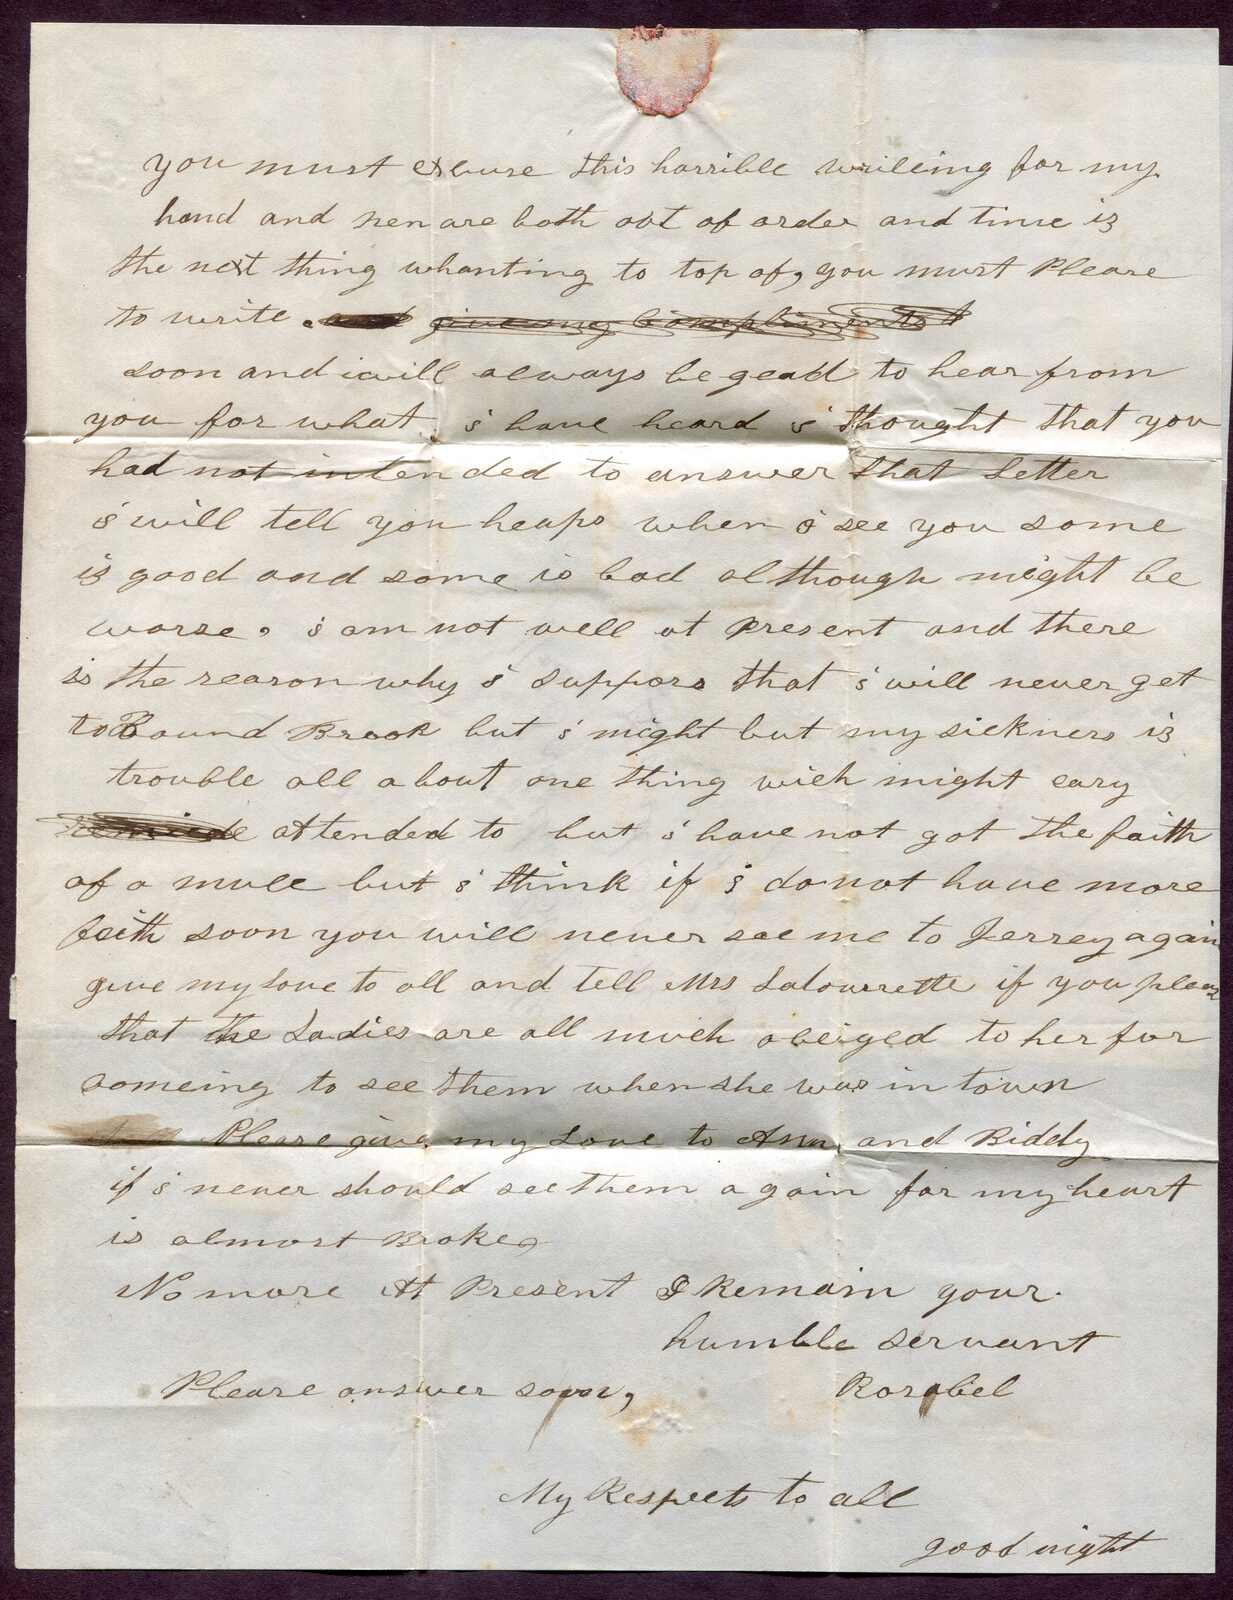 you must excuse this horrible writeing for my
hand and pen are both out of order and time is
the next thing whanting to top of, you must Please
to write. and give my compliments
soon and i will always be glad to hear from
you for what i have heard i thought that you
had not intended to answer that Letter
i will tell you heaps when i see you some
is good and some is bad although might be
worse, i am not well at Present and there
is the reason why i suppors that i will never get
to Bound Brook but i might but my sickness is
trouble all about one thing wich might eary
attended to but i have not got the faith
of a mule but i think if i do not have more
faith soon you will never see me to Jerrey again
give my love to all and tell Mrs Lalourrette if you pleas
that the Ladies are all much obeiged to her for
comeing to see them when she was in town
Please give my Love to Ann, and Biddy
if i never should see them again for my heart
is almost Broke,
No more At Present I Remain your
humble servant
Please answer soon, Rosabel
My Respects to all
good night